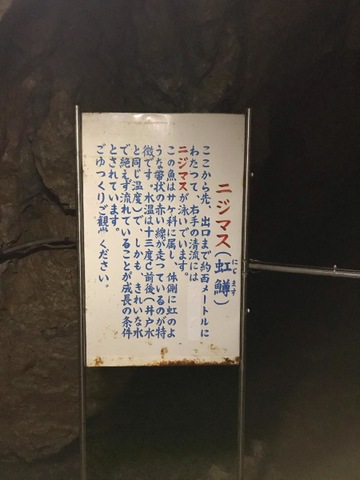 ニジマス(虹鱒)
にじ ます
ここから先、出口まで約百メートルに
わたって、右手の清流には
ニジマスが泳いでいます。
この魚はサケ科に属し、体側に虹のよ
うな帯状の赤い線が走っているのが特
徴です。水温は十三度C前後(井戸水
と同じ温度)で、しかも、きれいな水
で絶えず流れていることが成長の条件
とされています。
ごゆっくりご観賞ください。